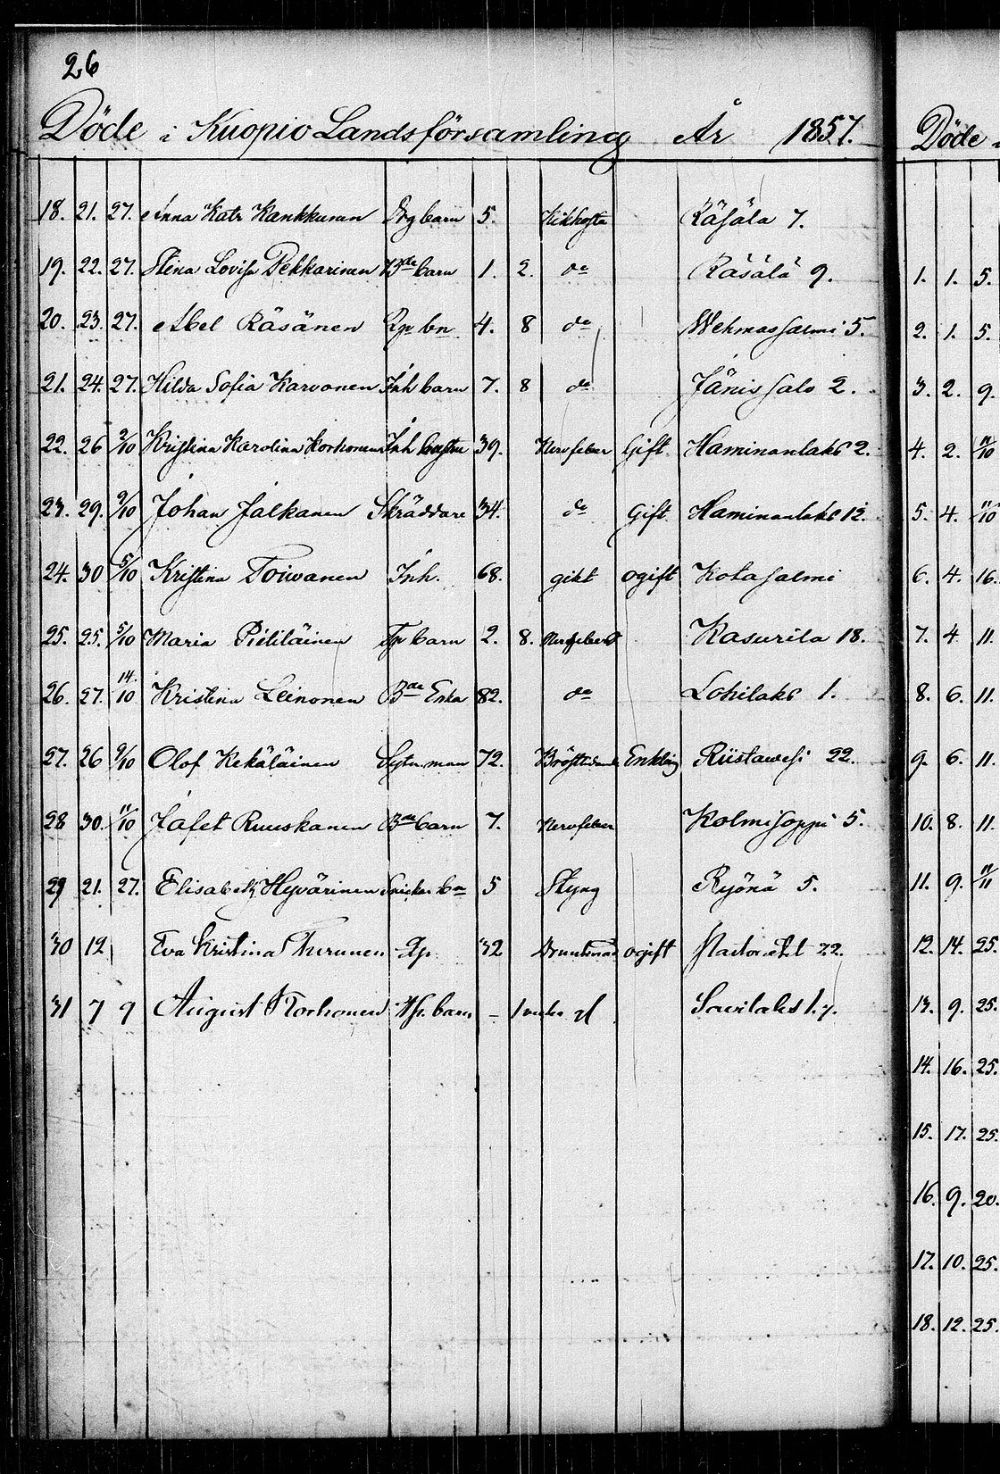 26
Döde i Kuopio Landsförsamling År 1857.
18. 21. 27. Anna Katr Kankkunen barn 5. Kikhosta Räsälä 7.
19. 22. 27. Stina Lovisa Pekkarinen Bde barn 1. 2. do Räsälä 9.
20. 23. 27. Abel Räsänen bn 4. 8 do Wehmassalmi 5.
21. 24. 27. Hilda Sofia Karvonen Inh barn 7. 8 do Jänissalo 2.
22. 26 2/10 Kristina Karolina Korhonen Inh hustru 39. Nervfeber Gift Haminanlaks 2.
23. 29. 9/10 Johan Jalkanen Skräddare 34. do Gift Haminanlaks 12.
24. 30 5/10 Kristina Toiwanen Inh. 68. gikt ogift Kotasalmi
25. 25. 5/10 Maria Pietiläinen barn 2. 8. Nervfeber Kasurila 18.
26. 27. 14/10 Kristina Leinonen Bde Enka 82. do Lohilaks 1.
27. 26 9/10 Olof Kekäläinen Sytn. man 72. Enkling Riistawesi 22.
28 30. 11/10 Jafet Ruuskanen Bde barn 7. Nervfeber Kolmisoppi 5.
29 21. 27. Elisabeth Hyvärinen 5 Styng Ryönä 5.
30 12 Eva Kristina 32 Drunknad ogift 22.
31 7 9 August Korhonen barn – 1 Savilaks 1.7.
Döde
1. 1. 5.
2. 1. 5.
3. 2. 9.
4. 2. 11/10
5. 4. 11/10
6. 4. 16.
7. 4 11.
8. 6. 11.
9. 6. 11.
10. 8. 11.
11. 9.
12. 14. 25.
13. 9. 25.
14. 16. 25.
15. 17. 25.
16. 9. 20.
17. 10. 25.
18. 12. 25.